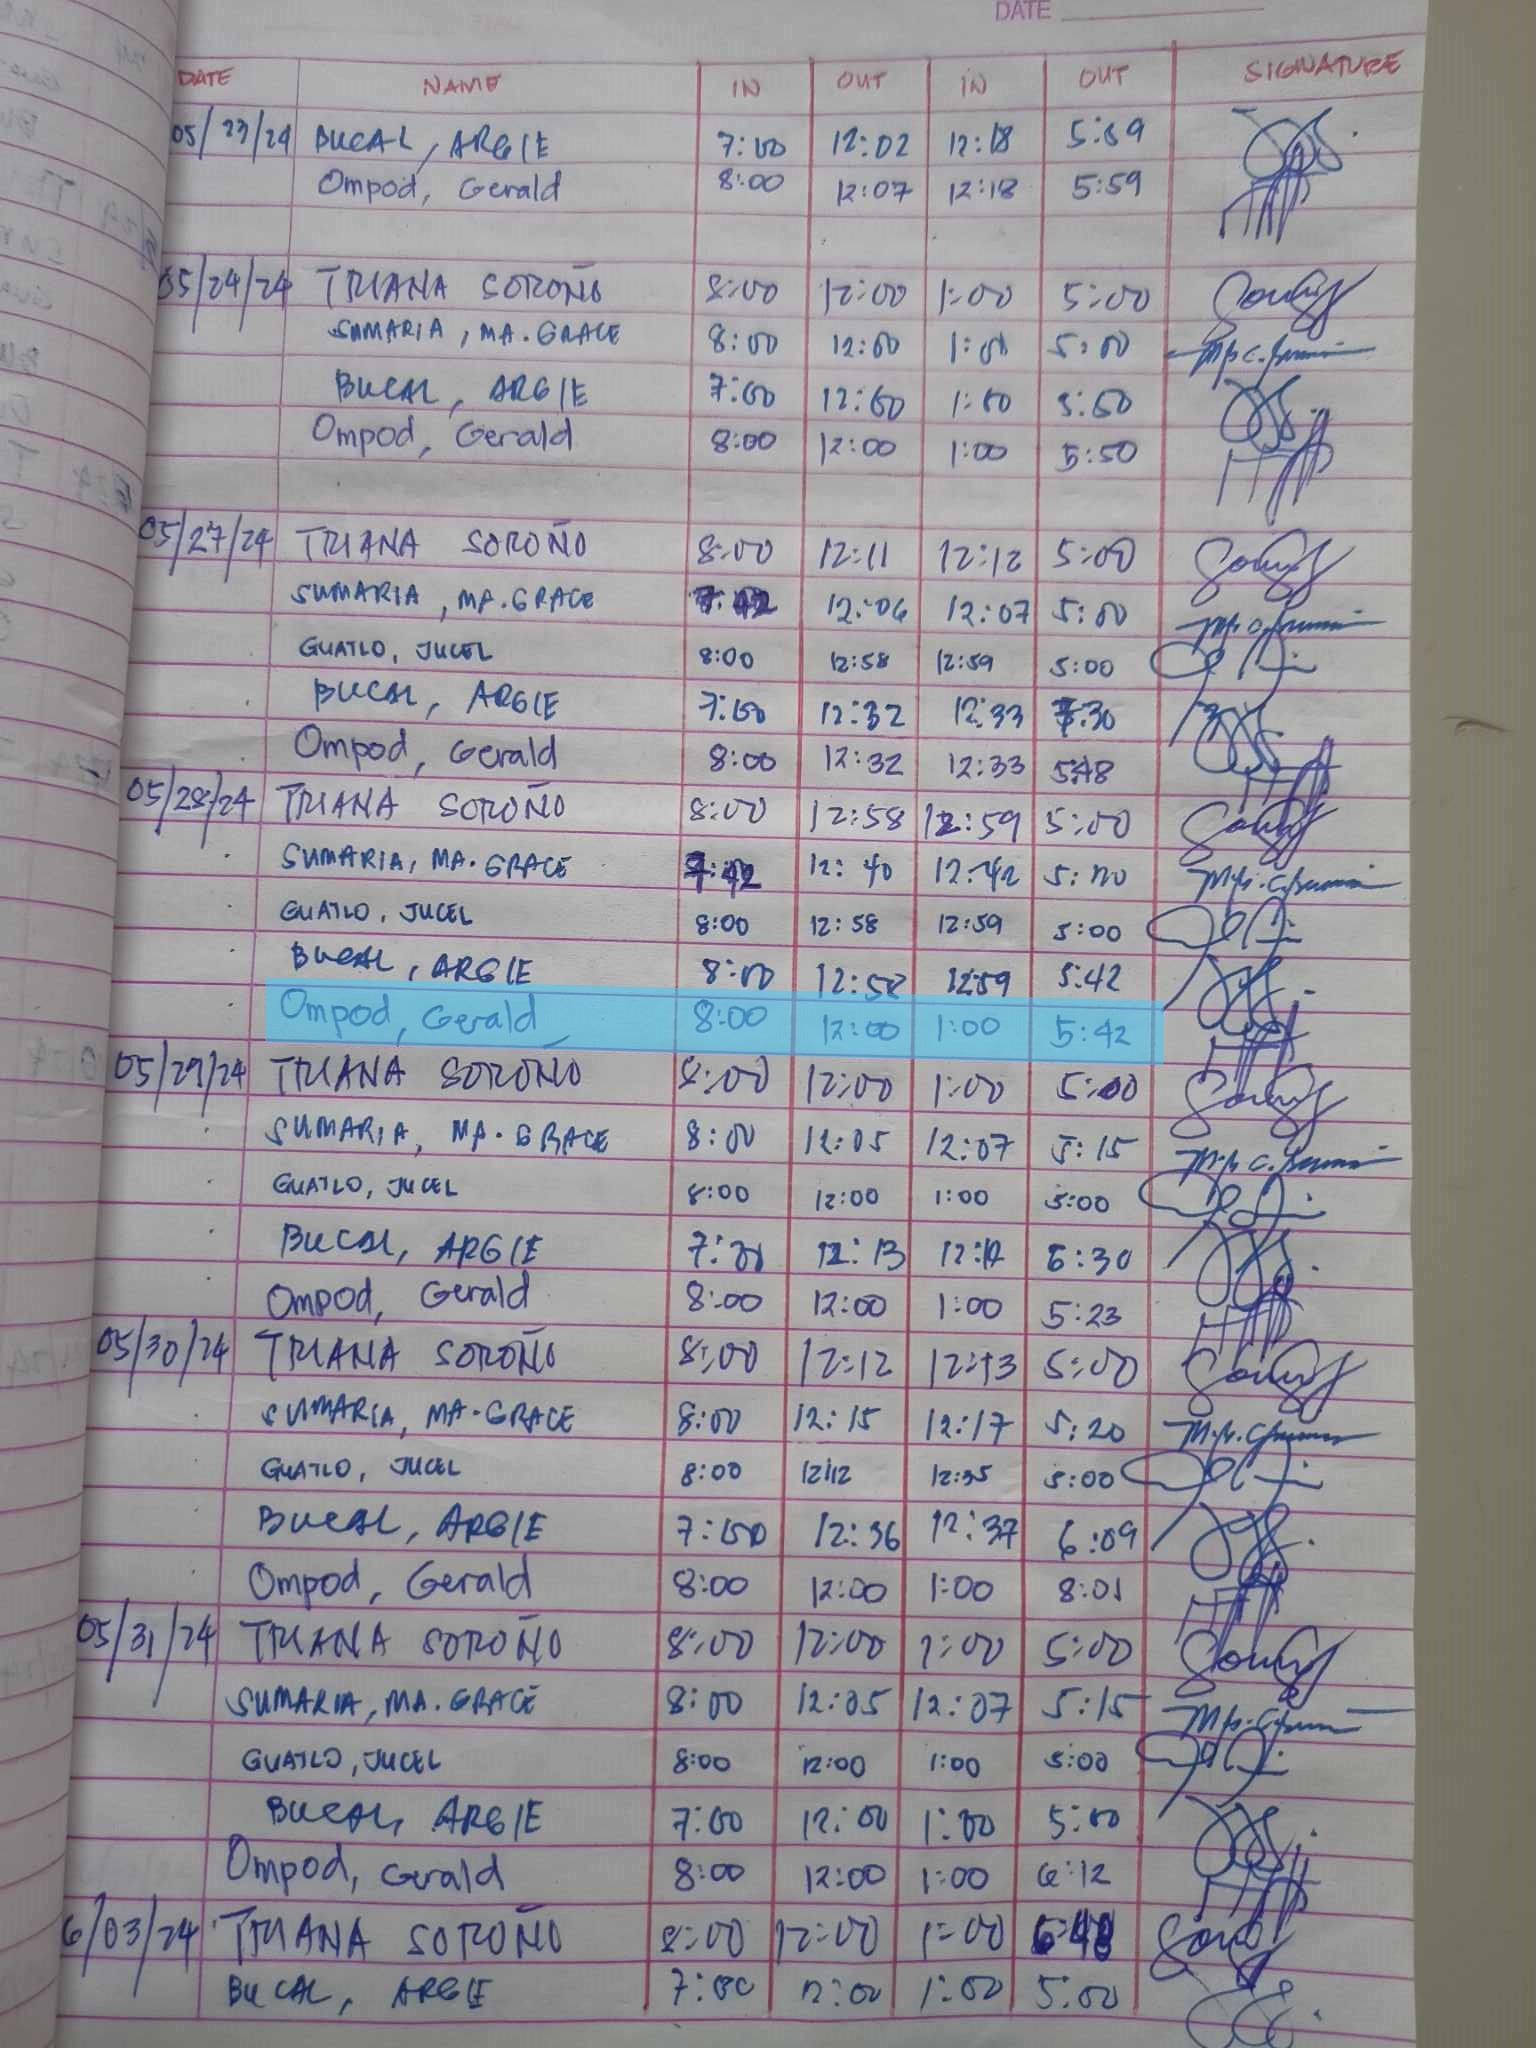 DATE
DATE NAME IN OUT IN OUT SIGNATURE
05/23/24 BUCAL, ARGIE 7:00 12:02 12:18 5:59
Ompod, Gerald 8:00 12:07 12:18 5:59
05/24/24 TRIANA SOROÑO 8:00 12:00 1:00 5:00
SUMARIA, MA. GRACE 8:00 12:00 1:00 5:00
BUCAL, ARGIE 7:00 12:00 1:00 5:50
Ompod, Gerald 8:00 12:00 1:00 5:50
05/27/24 TRIANA SOROÑO 8:00 12:11 12:12 5:00
SUMARIA, MA. GRACE 7:42 12:06 12:07 5:00
GUATLO, JUCEL 8:00 12:58 12:59 5:00
BUCAL, ARGIE 7:00 12:32 12:33 7:30
Ompod, Gerald 8:00 12:32 12:33 5:48
05/28/24 TRIANA SOROÑO 8:00 12:58 12:59 5:00
SUMARIA, MA. GRACE 7:42 12:40 12:42 5:00
GUATLO, JUCEL 8:00 12:58 12:59 5:00
BUCAL, ARGIE 8:00 12:58 12:59 5:42
Ompod, Gerald 8:00 12:00 1:00 5:42
05/29/24 TRIANA SOROÑO 8:00 12:00 1:00 5:00
SUMARIA, MA. GRACE 8:00 12:05 12:07 5:15
GUATLO, JUCEL 8:00 12:00 1:00 5:00
BUCAL, ARGIE 12:13 6:30
Ompod, Gerald 8:00 12:00 1:00 5:23
05/30/24 TRIANA SOROÑO 8:00 12:12 12:13 5:00
SUMARIA, MA. GRACE 8:00 12:15 12:17 5:20
GUATLO, JUCEL 8:00 12:12 12:35 5:00
BUCAL, ARGIE 7:00 12:36 12:37 6:09
Ompod, Gerald 8:00 12:00 1:00 8:01
05/31/24 TRIANA SOROÑO 8:00 12:00 1:00 5:00
SUMARIA, MA. GRACE 8:00 12:05 12:07 5:15
GUATLO, JUCEL 8:00 12:00 1:00 5:00
BUCAL, ARGIE 7:00 12:00 1:00 5:00
Ompod, Gerald 8:00 12:00 1:00 6:12
6/03/24 TRIANA SOROÑO 8:00 12:00 1:00
BUCAL, ARGIE 7:00 12:00 1:00 5:00